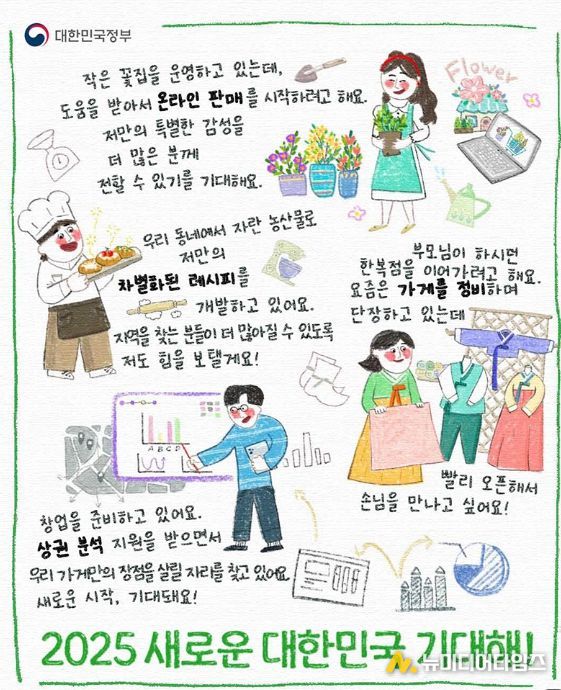 대한민국정부
작은 꽃집을 운영하고 있는데,
도움을 받아서 온라인 판매를 시작하려고 해요.
저만의 특별한 감성을
더 많은 분께
전할 수 있기를 기대해요.
Flower
우리 동네에서 자란 농산물로
저만의
차별화된 레시피를
개발하고 있어요.
지역을 찾는 분들이 더 많아질 수 있도록
저도 힘을 보탤게요!
부모님이 하시면
한복점을 이어가려고 해요.
요즘은 가게를 정비하며
단장하고 있는데
빨리 오픈해서
손님을 만나고 싶어요!
A B C D
창업을 준비하고 있어요.
상권 분석 지원을 받으면서
우리 가게만의 장점을 살릴 자리를 찾고 있어요
새로운 시작, 기대돼요!
2025 새로운 대한민국 기대해!
뉴미디어타임즈